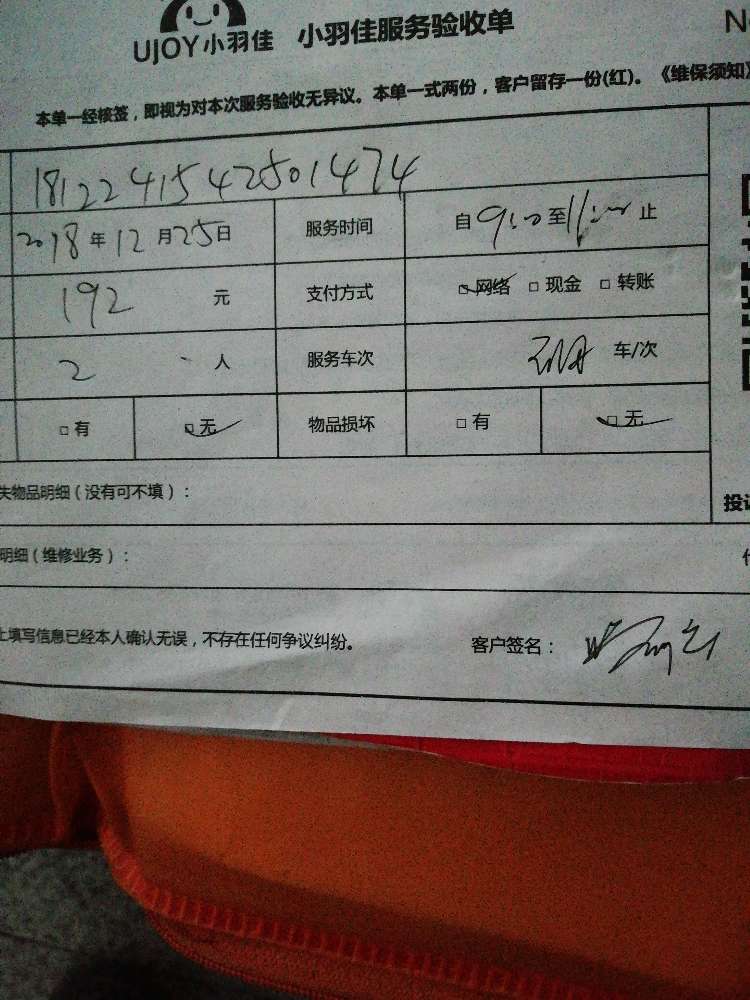 UJOY小羽佳 小羽佳服务验收单 N
本单一经核签，即视为对本次服务验收无异议。本单一式两份，客户留存一份(红)。《维保须知》
1812241542501474
2018年12月25日 服务时间 自9:00至11:00止
192 元 支付方式 □网络 □现金 □转账
2 人 服务车次 车/次
□有 □无 物品损坏 □有 □无
失物品明细（没有可不填）： 投
明细（维修业务）：
上填写信息已经本人确认无误，不存在任何争议纠纷。 客户签名：